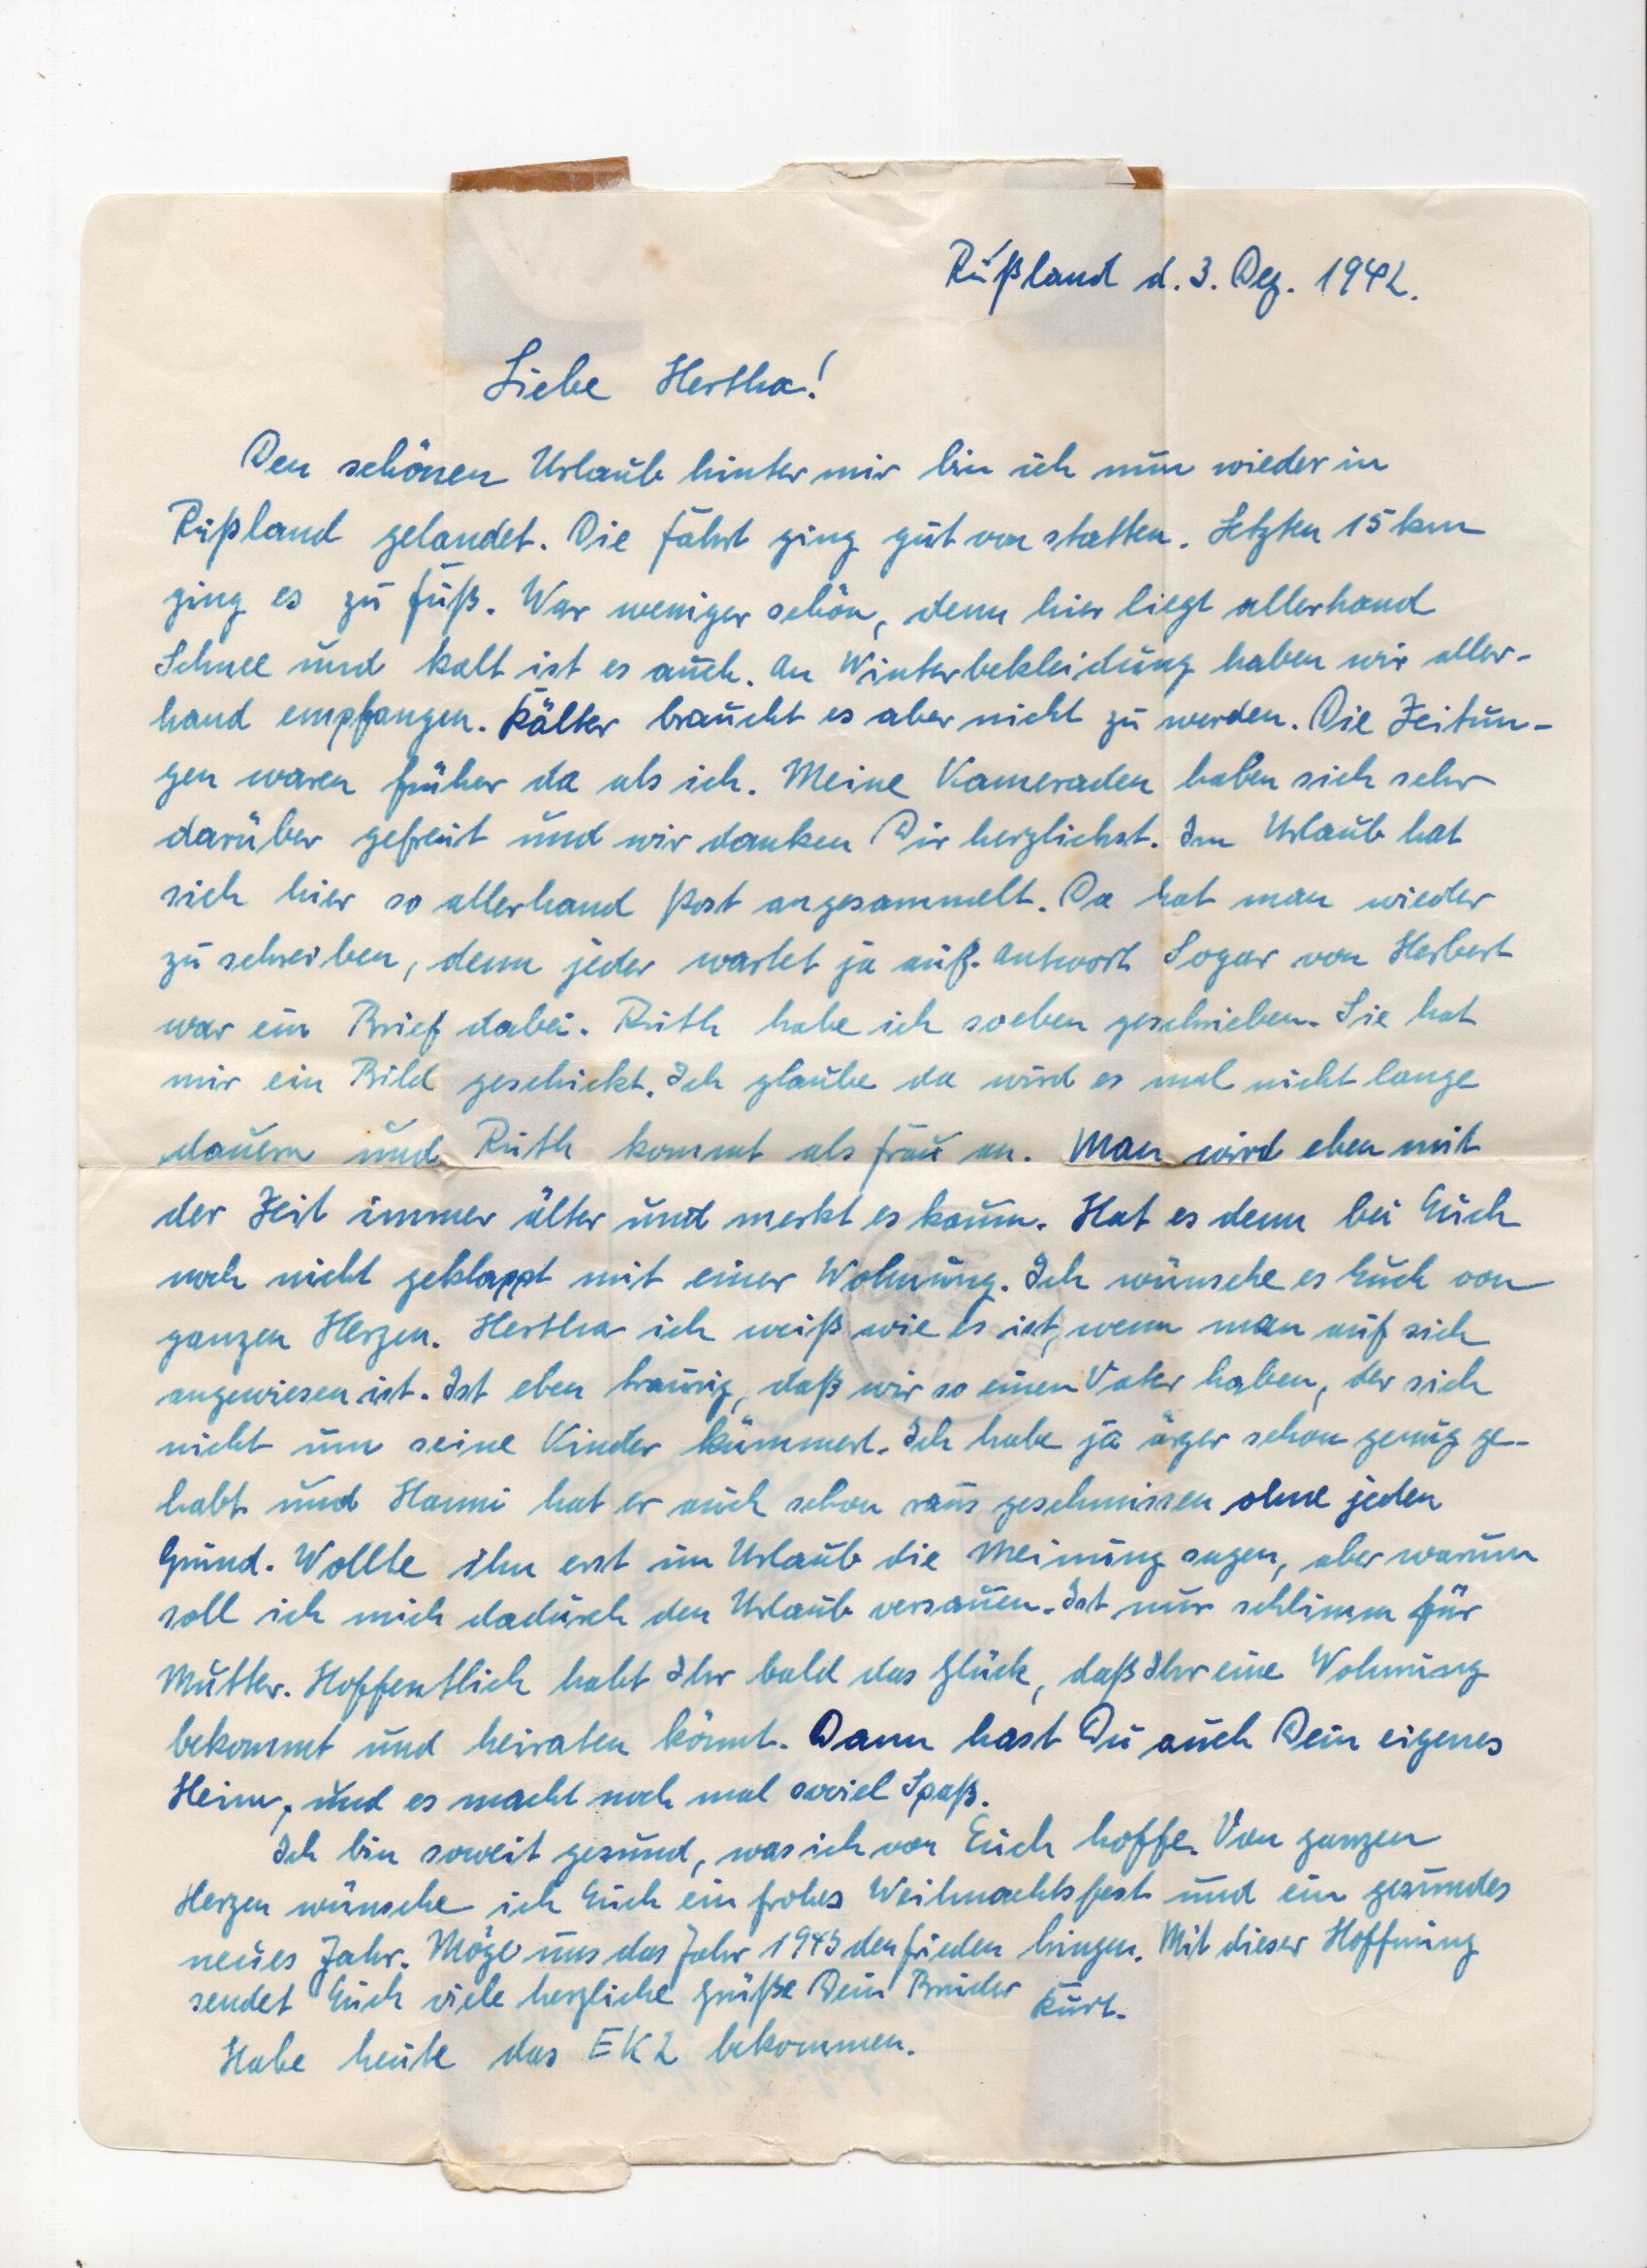 Rußland d. 3. Dez. 1942.
Liebe Hertha!
Den schönen Urlaub hinter mir bin ich nun wieder in
Rußland gelandet. Die Fahrt ging gut von statten. Letzten 15 km
ging es zu Fuß. War weniger schön, denn hier liegt allerhand
Schnee und kalt ist es auch. An Winterbekleidung haben wir aller-
hand empfangen. Kälter braucht es aber nicht zu werden. Die Zeitun-
gen waren früher da als ich. Meine Kameraden haben sich sehr
darüber gefreut und wir danken Dir herzlichst. Im Urlaub hat
sich hier so allerhand Post angesammelt. Da hat man wieder
zu schreiben, denn jeder wartet ja auf Antwort Sogar von Herbert
war ein Brief dabei. Ruth habe ich soeben geschrieben. Sie hat
mir ein Bild geschickt. Ich glaube da wird es mal nicht lange
dauern und Ruth kommt als Frau an. Man wird eben mit
der Zeit immer älter und merkt es kaum. Hat es denn bei Euch
noch nicht geklappt mit einer Wohnung. Ich wünsche es Euch von
ganzen Herzen. Hertha ich weiß wie es ist, wenn man auf sich
angewiesen ist. Ist eben traurig, daß wir so einen Vater haben, der sich
nicht um seine Kinder kümmert. Ich habe ja ärger schon genug ge-
habt und Hanni hat er auch schon raus geschmissen ohne jeden
Grund. Wollte ihm erst im Urlaub die Meinung sagen, aber warum
soll ich mich dadurch den Urlaub versauen. Ist nur schlimm für
Mutter. Hoffentlich habt Ihr bald das Glück, daß Ihr eine Wohnung
bekommt und heiraten könnt. Dann hast Du auch Dein eigenes
Heim, und es macht noch mal soviel Spaß.
Ich bin soweit gesund, was ich von Euch hoffe. Von ganzen
Herzen wünsche ich Euch ein frohes Weihnachtsfest und ein gesundes
neues Jahr. Möge uns das Jahr 1943 den Frieden bringen. Mit dieser Hoffnung
sendet Euch viele herzliche Grüße Dein Bruder Kurt.
Habe heute das EK2 bekommen.